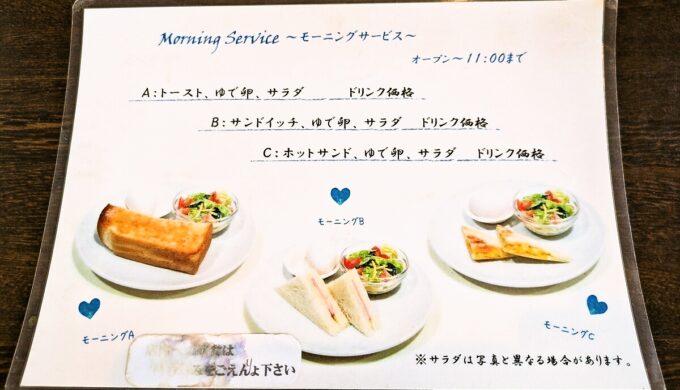 Morning Service ～モーニングサービス～
オープン～11:00まで
A:トースト、ゆで卵、サラダ ドリンク価格
B:サンドイッチ、ゆで卵、サラダ ドリンク価格
C:ホットサンド、ゆで卵、サラダ ドリンク価格
モーニングB
モーニングA
モーニングC
ごえんりょ下さい
※サラダは写真と異なる場合があります。